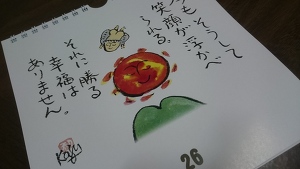 そうして
も
笑顔が浮かべ
られる。
それに勝る
幸福は
ありません。
26